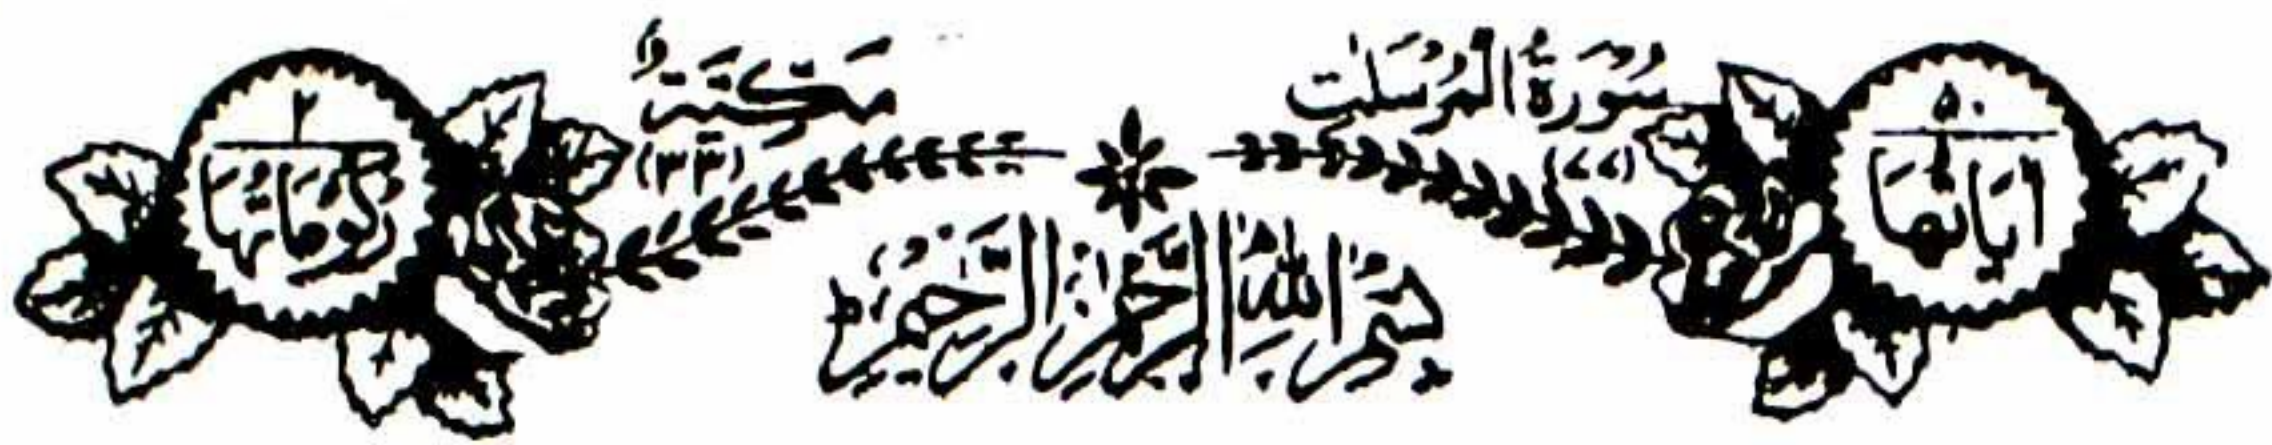 ۵۰
اٰيَاتُهَا
سُوْرَةُ الْمُرْسَلٰتِ
(۷۷)
مَكِّيَّةٌ
(۳۳)
۲
رُكُوْعَاتُهَا
بِسْمِ اللّٰهِ الرَّحْمٰنِ الرَّحِيْمِ